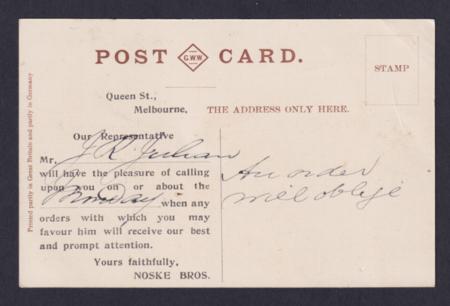 POST G.W.W. CARD.
STAMP
Queen St.,
Melbourne,
THE ADDRESS ONLY HERE.
Our Representative
Mr. J. R. Julian
will have the pleasure of calling
upon you on or about the
Monday when any
orders with which you may
favour him will receive our best
and prompt attention.
Yours faithfully,
NOSKE BROS.
An order
will oblige
Printed partly in Great Britain and partly in Germany